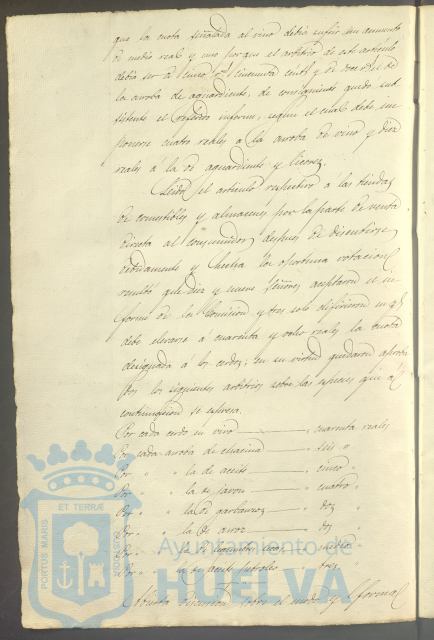 que la cuota señalada al vino debia sufrir un aumento
de medio real y uno porque el arbitrio de este articulo
debia ser á cinco rs cincuenta cénts y de doce el de
la arroba de aguardiente, de consiguiente quedó sub
sistente el referido informe, segun el cual debe im
ponerse cuatro reales á la arroba de vino y diez
reales á la de aguardiente y licores.
Leido el articulo respectivo á las tiendas
de comestibles y almacenes por la parte de venta
directa al consumidor, despues de discutirse
detenidamente y hecha la oportuna votacion
resultó que diez y nueve Señores aceptaron el in
forme de la Comision y tres solo difirieron en q
debe elevarse á cuarenta y ocho reales la cuota
designada á los cerdos; en su virtud quedaron aproba
dos los siguientes arbitrios sobre las especies que á
continuacion se espresa.
Por cada cerdo en vivo " cuarenta reales
Por cada arroba de chacina " seis "
Por " " la de aceite " cinco "
Por " " la de jabon " cuatro "
Por " " la de garbanzos " dos "
Por " " la de arroz " dos "
Por " " la de " medio
Por " " la de aceite petroleo " tres "
Abierta discusion sobre el modo y forma
PORTUS MARIS
ET TERRÆ
CUSTODIA
Ayuntamiento de
HUELVA